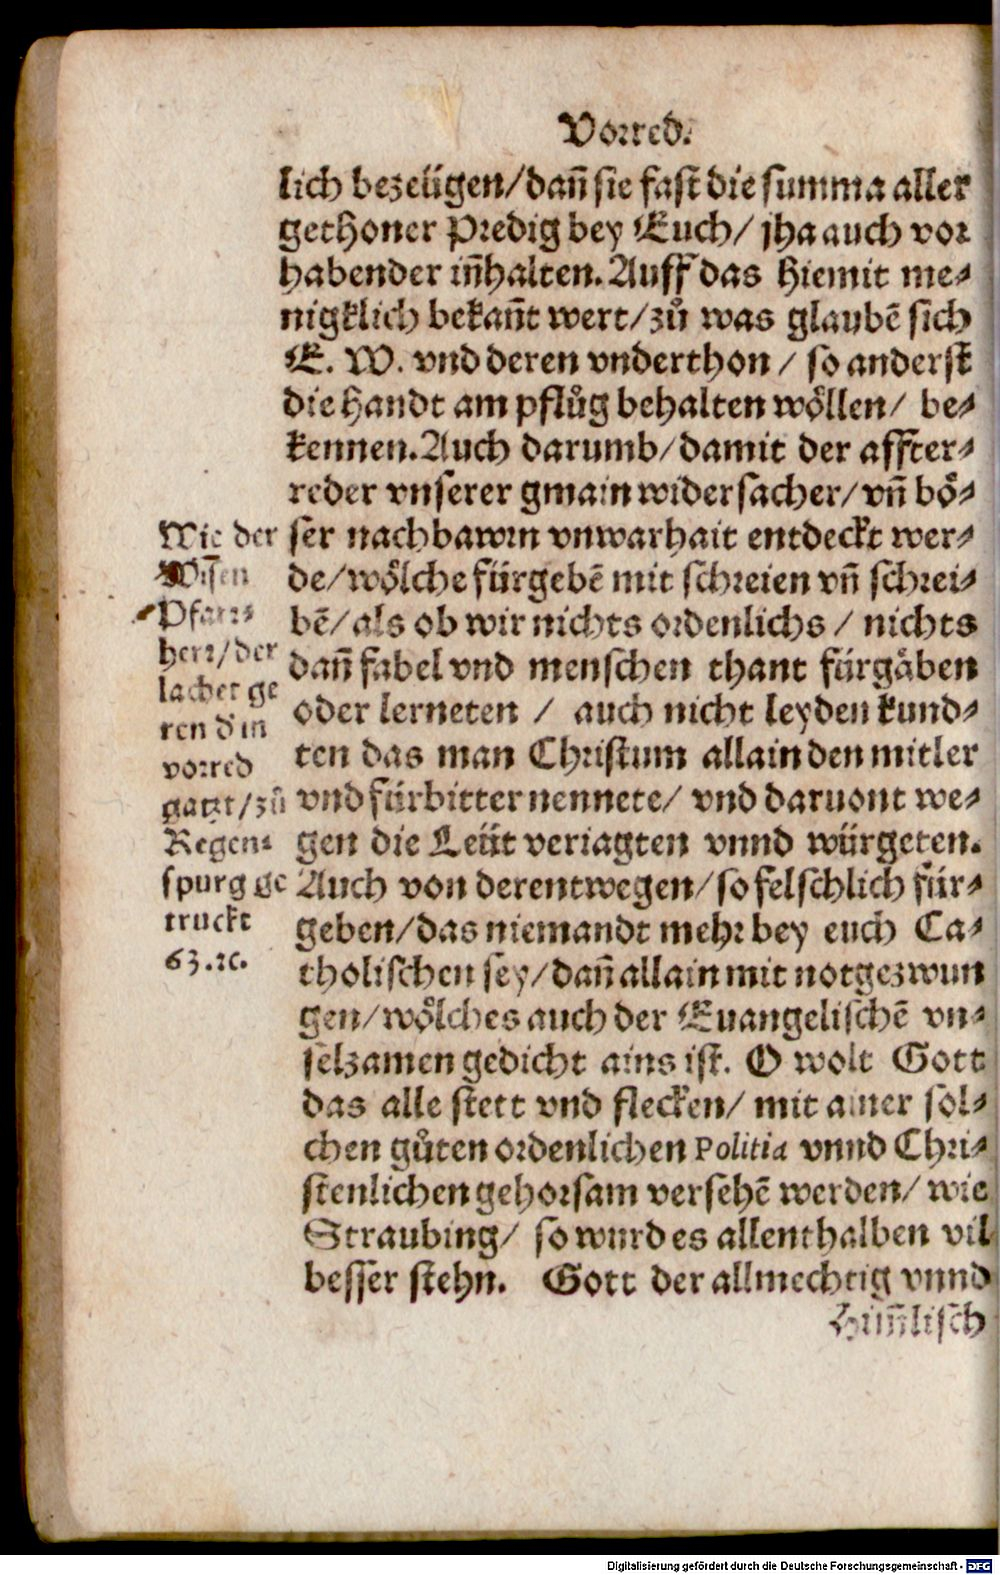 Vorred.
lich bezeügen/dañ sie fast die summa aller
gethoner Predig bey Euch/ jha auch vor
habender iñhalten. Auff das hiemit me-
nigklich bekañt wert/zů was glaubē sich
E. W. vnd deren vnderthon / so anderst
die handt am pflůg behalten wöllen/ be-
kennen. Auch darumb/damit der affter-
reder vnserer gmain widersacher/vñ bö-
ser nachbawrn vnwarhait entdeckt wer-
de/wölche fürgebē mit schreien vñ schrei-
bē/als ob wir nichts ordenlichs / nichts
dañ fabel vnd menschen thant fürgäben
oder lerneten / auch nicht leyden kund-
ten das man Christum allain den mitler
vnd fürbitter nennete/ vnd daruont we-
gen die Leüt veriagten vnnd würgeten.
Auch von derentwegen/so felschlich für-
geben/das niemandt mehr bey euch Ca-
tholischen sey/dañ allain mit notgezwun
gen/wölches auch der Euangelischē vn-
selzamen gedicht ains ist. O wolt Gott
das alle stett vnd flecken/ mit ainer sol-
chen gůten ordenlichen Politia vnnd Chri-
stenlichen gehorsam versehē werden/ wie
Straubing/ so wurd es allenthalben vil
besser stehn. Gott der allmechtig vnnd
Him̃lisch
Wie der
Wisen
Pfarr-
herr/der
lacher ge
ren d' in
vorred
gatzt/zů
Regen-
spurg ge
truckt
63.ꝛc.
Digitalisierung gefördert durch die Deutsche Forschungsgemeinschaft - DFG